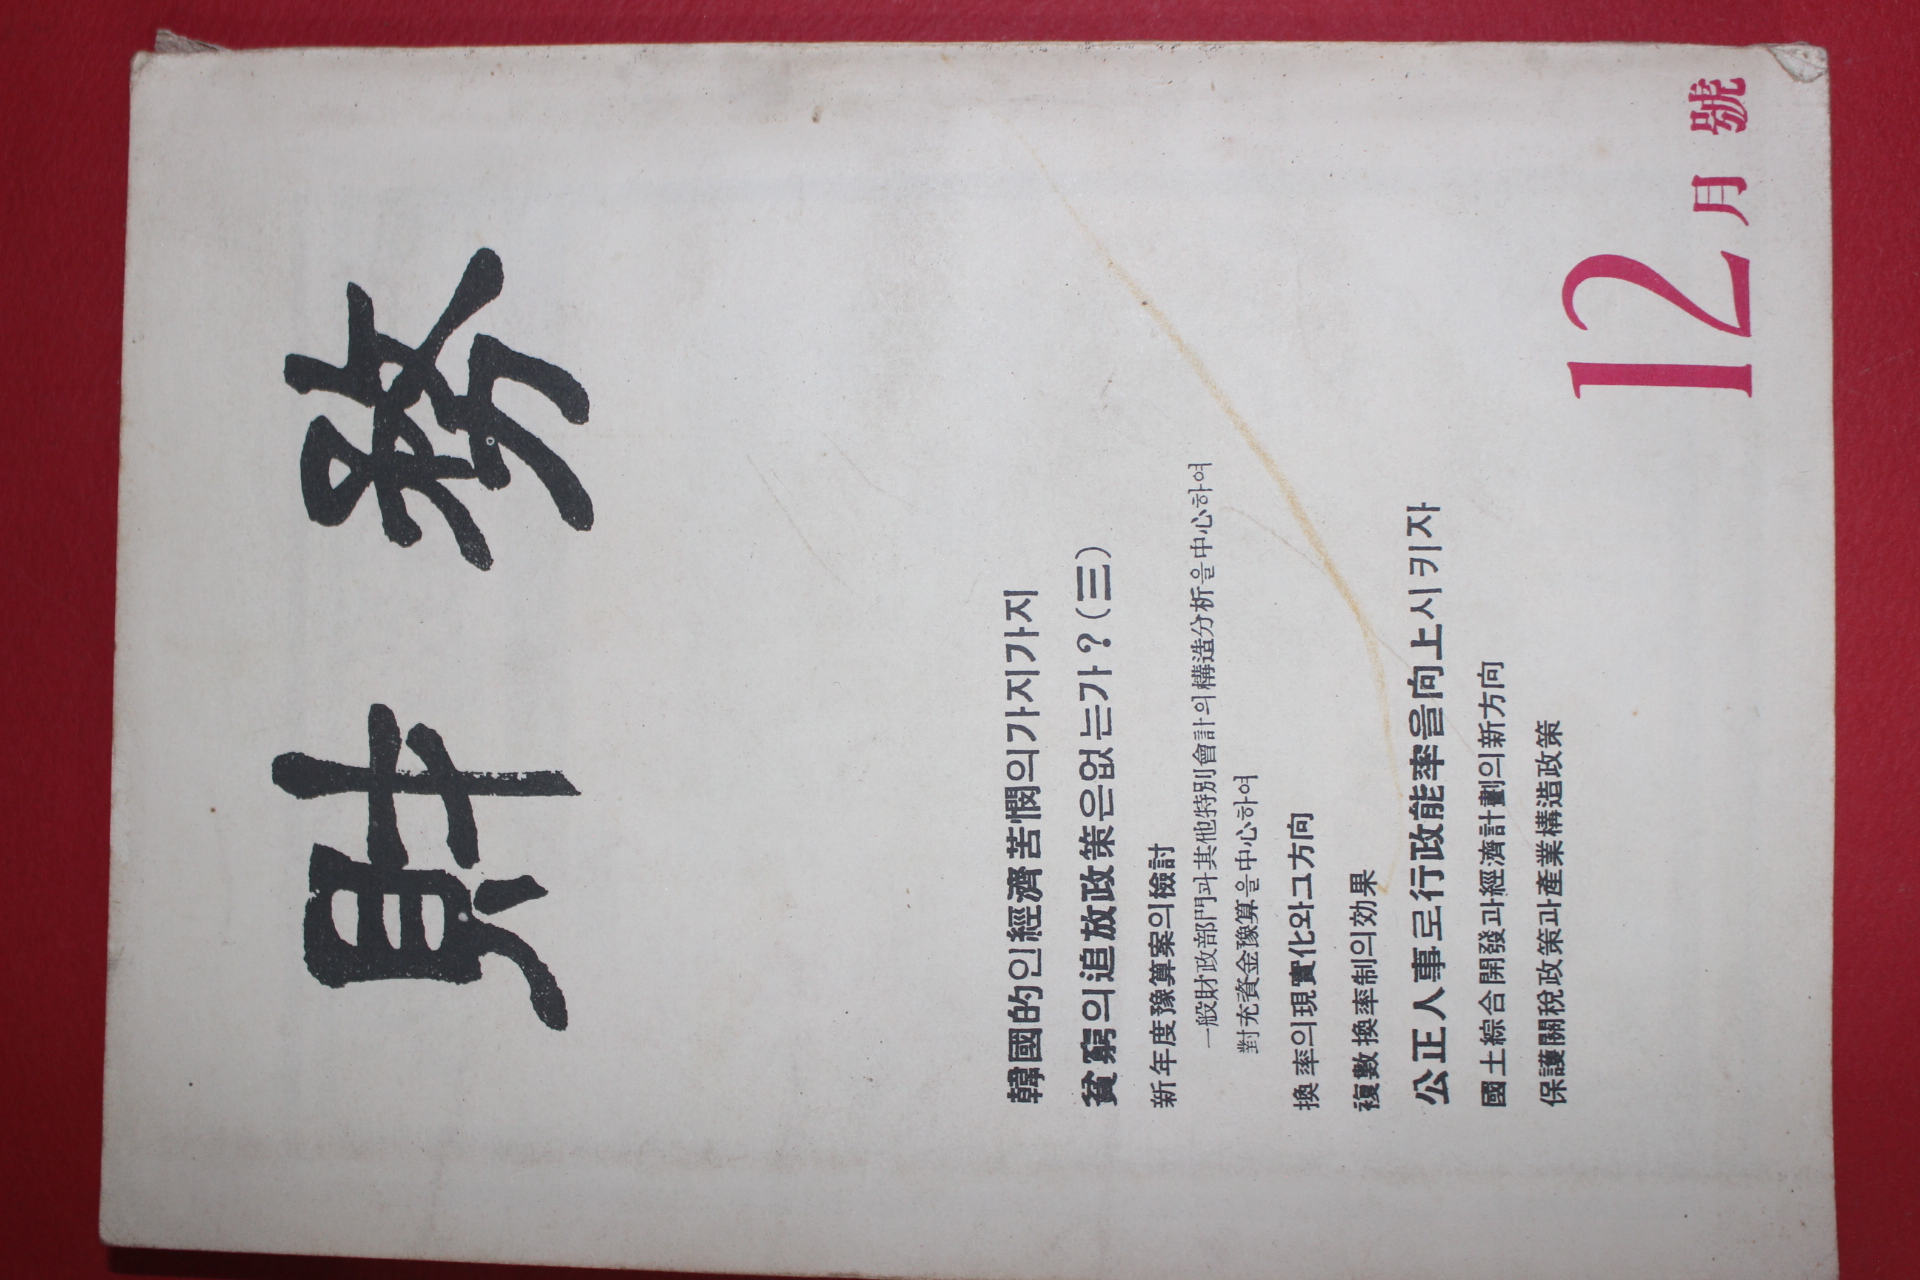 財務
韓國的인經濟苦憫의가지가지
貧窮의追放政策은없는가?(三)
新年度豫算案의檢討
一般財政部門과其他特別會計의構造分析을中心하여
對充資金豫算을中心하여
換率의現實化와그方向
複數換率制의効果
公正人事로行政能率을向上시키자
國土綜合開發과經濟計劃의新方向
保護關稅政策과産業構造政策
12月號